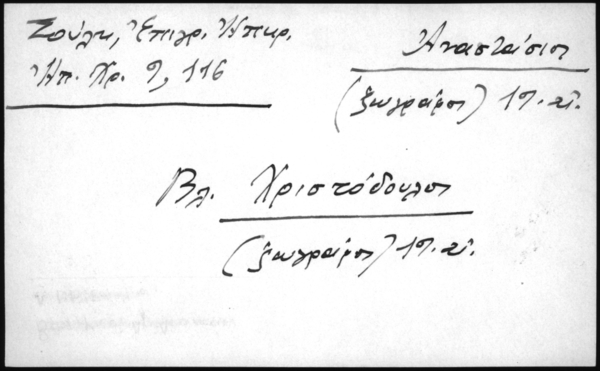 Σούλη, Ἐπιγρ. Ἠπειρ.
Ἠπ. Χρ. 9, 116
Ἀναστάσιος
(ζωγράφος) 19. αἰ.
Βλ. Χριστόδουλος
(ζωγράφος) 19. αἰ.